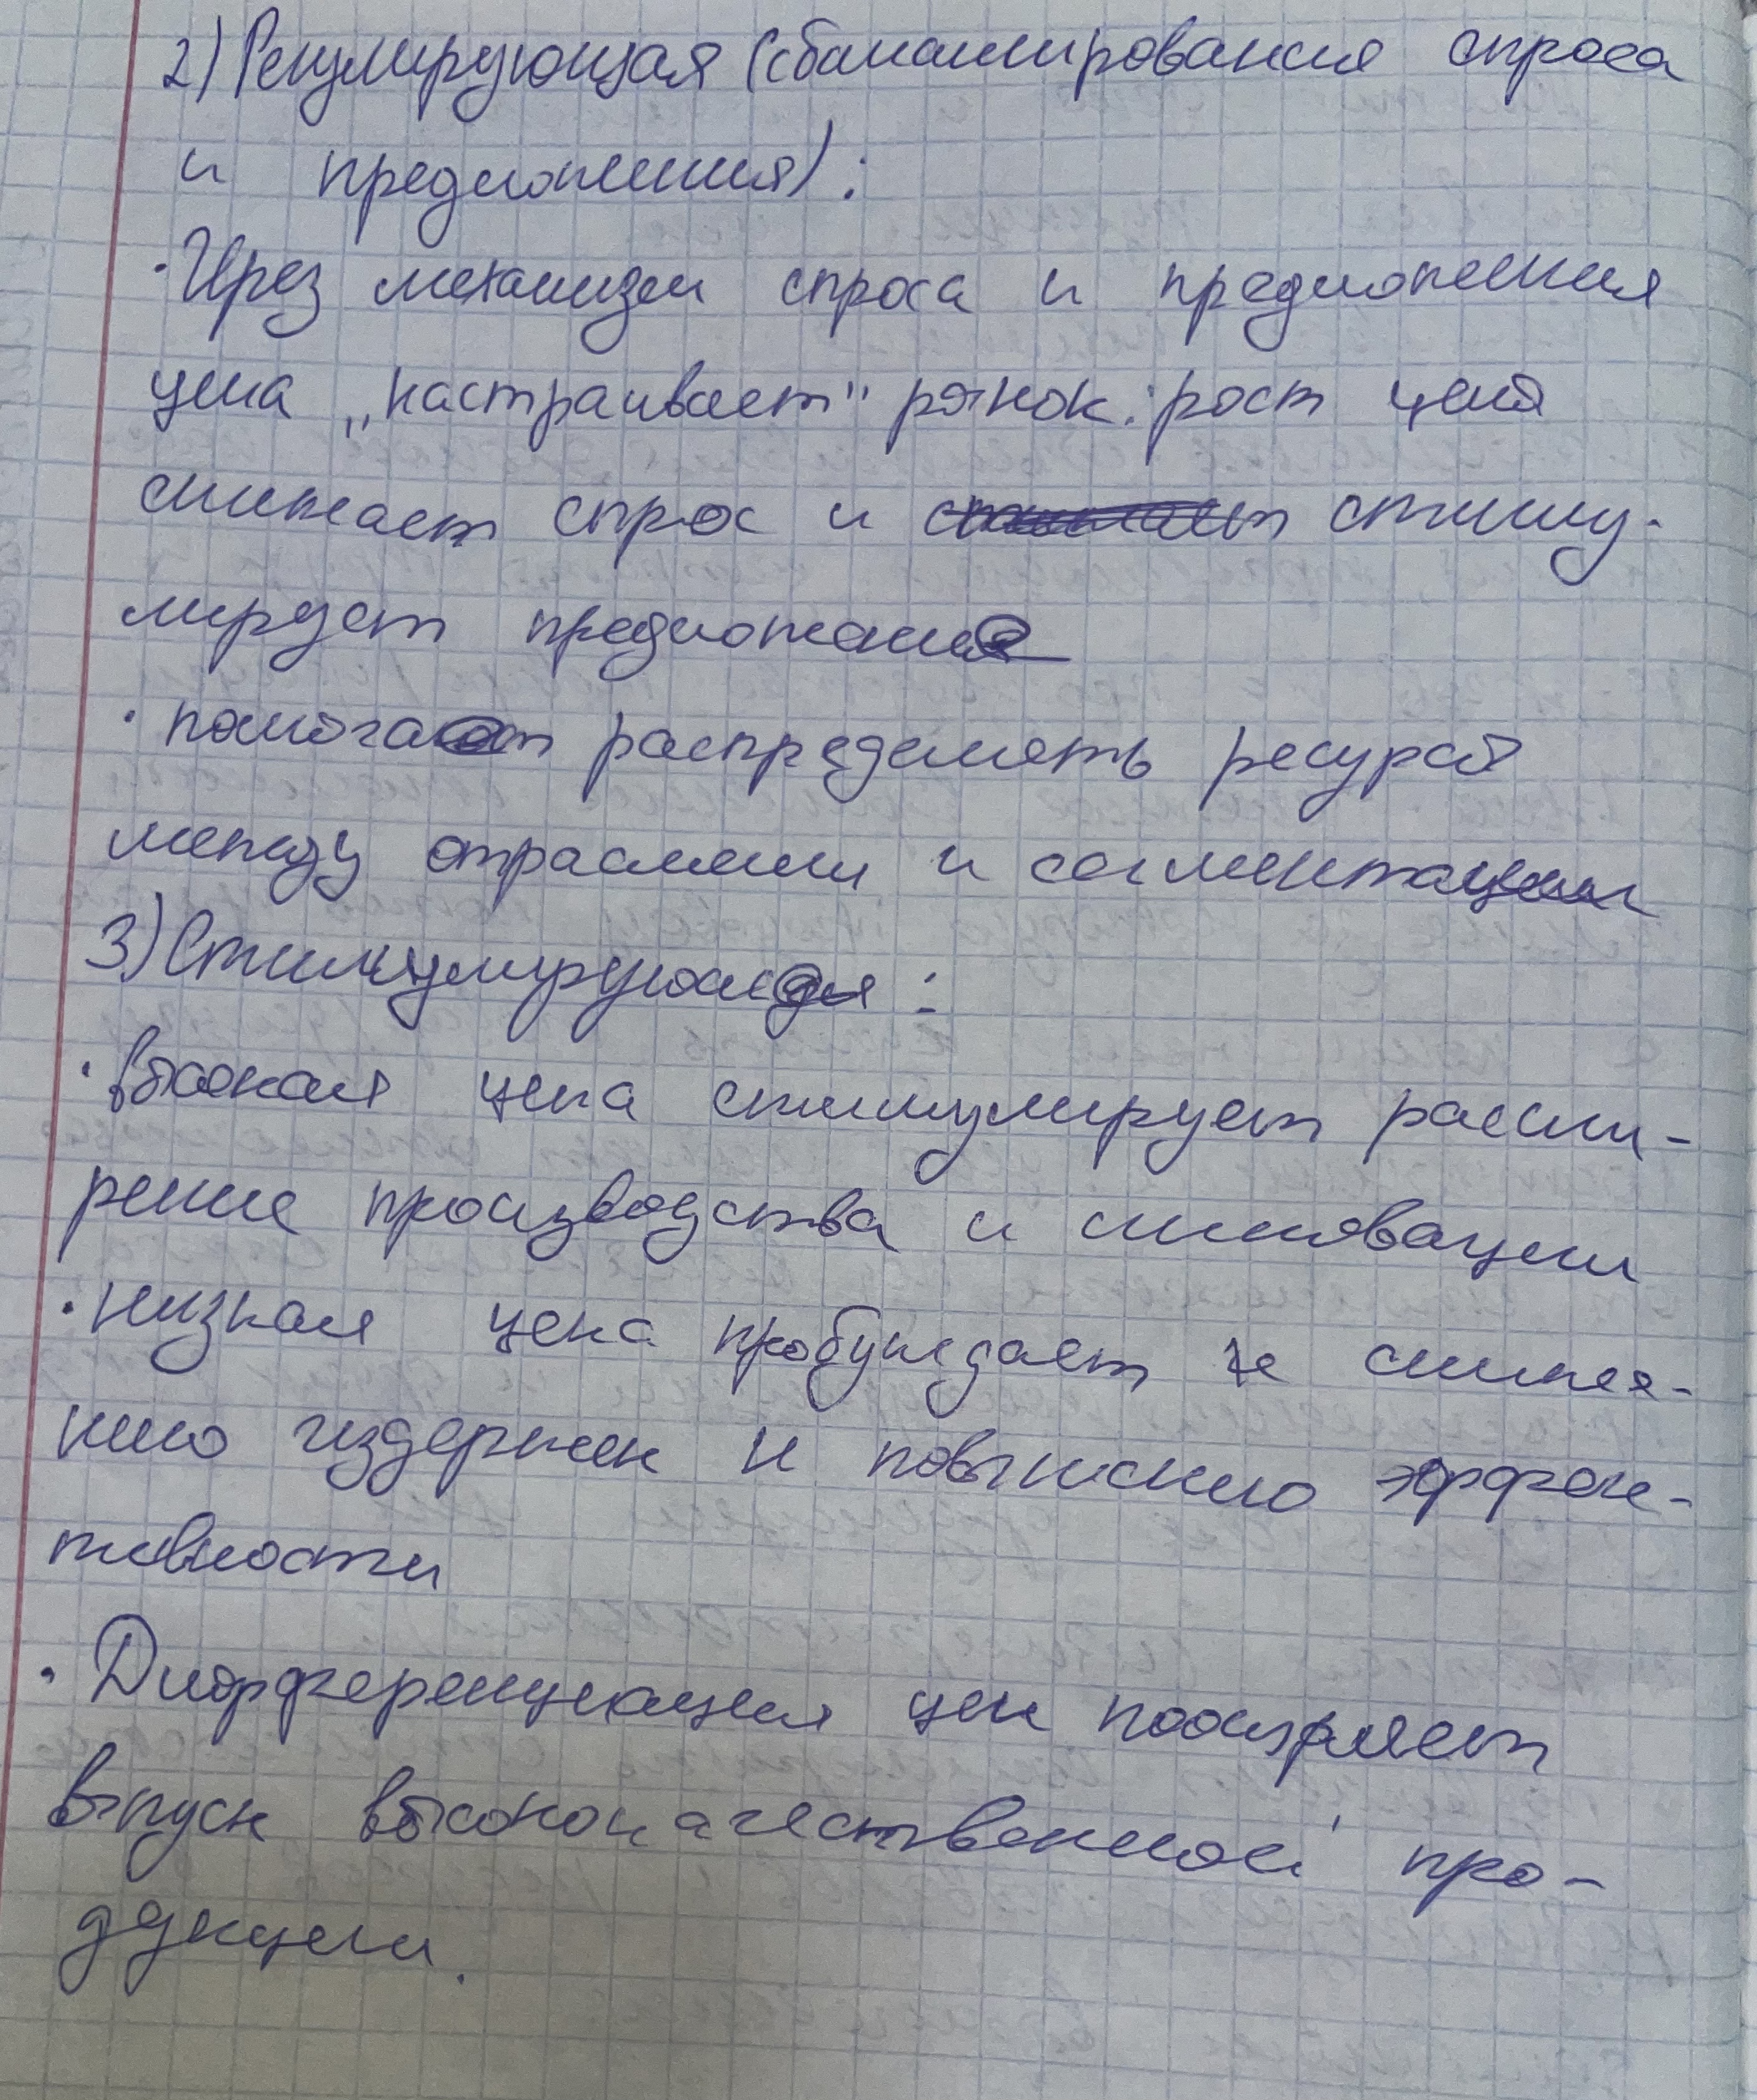 2) Регулирующая (сбалансирования спроса
и предложения):
· Через механизм спроса и предложения
цена „настраивает" рынок: рост цены
снижает спрос и стиму-
лирует предложение
· помогает распределять ресурсы
между отраслями и сегментации
3) Стимулирующая:
· высокая цена стимулирует расши-
рение производства и инновации
· низкая цена пробуждает к сниже-
нию издержек и повышению эффек-
тивности
· Дифференциация цен поощряет
выпуск высококачественной про-
дукции.